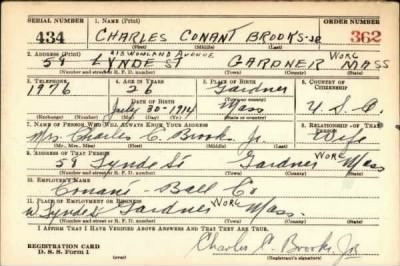 SERIAL NUMBER 1. NAME (Print) ORDER NUMBER
434 CHARLES CONANT BROOKS-JR 362
(First) (Middle) (Last)
2. ADDRESS (Print)
59 LYNDE ST GARDNER WORC MASS
(Number and street or R. F. D. number) (Town) (County) (State)
3. TELEPHONE 4. AGE IN YEARS 5. PLACE OF BIRTH 6. COUNTRY OF CITIZENSHIP
1976 26 Gardner
(Town or county)
DATE OF BIRTH
July 30-1914 Mass U.S.A.
(Mo.) (Day) (Yr.) (State or country)
7. NAME OF PERSON WHO WILL ALWAYS KNOW YOUR ADDRESS 8. RELATIONSHIP OF THAT PERSON
Mrs Charles C. Brooks Jr. Wife
(Mr., Mrs., Miss) (First) (Middle) (Last)
9. ADDRESS OF THAT PERSON
59 Lynde St Gardner Worc Mass
(Number and street or R. F. D. number) (Town) (County) (State)
10. EMPLOYER'S NAME
Conant-Ball Co
11. PLACE OF EMPLOYMENT OR BUSINESS
Gardner Worc Mass.
(Number and street or R. F. D. number) (Town) (County) (State)
I AFFIRM THAT I HAVE VERIFIED ABOVE ANSWERS AND THAT THEY ARE TRUE.
REGISTRATION CARD
D. S. S. Form 1
Charles C. Brooks, Jr
(Registrant's signature)